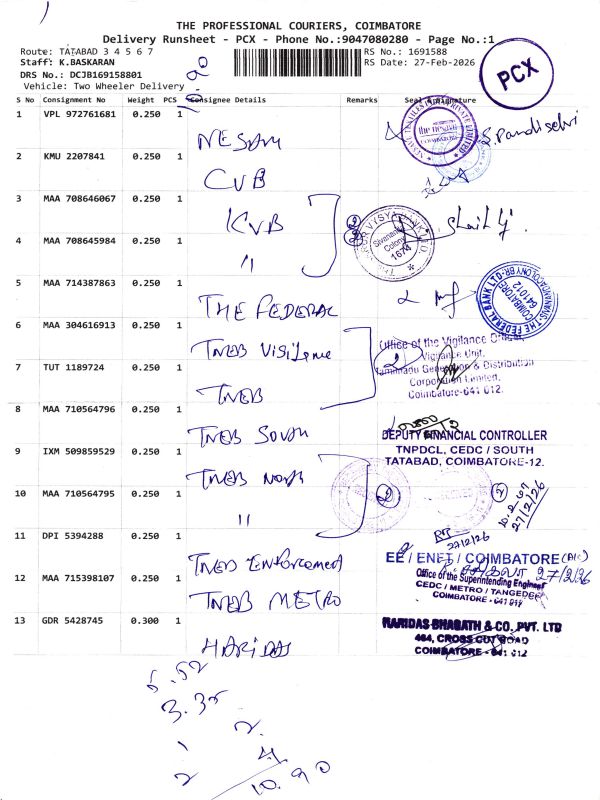 THE PROFESSIONAL COURIERS, COIMBATORE
Delivery Runsheet - PCX - Phone No.:9047080280 - Page No.:1
Route: TATABAD 3 4 5 6 7
RS No.: 1691588
Staff: K.BASKARAN
RS Date: 27-Feb-2026
DRS No.: DCJB169158801
Vehicle: Two Wheeler Delivery
PCX
S No Consignment No Weight PCS Consignee Details Remarks Seal & Signature
1 VPL 972761681 0.250 1 NESAM S. Pandiselvi
2 KMU 2207841 0.250 1 CVB
3 MAA 708646067 0.250 1 KVB
4 MAA 708645984 0.250 1 "
Sivananda Colony 1674
5 MAA 714387863 0.250 1 THE FEDERAL
THE FEDERAL BANK LTD
COIMBATORE 641012
6 MAA 304616913 0.250 1 TNEB Vigilance
Office of the Vigilance
Vigilance Unit,
Tamilnadu Generation & Distribution
Corporation Limited,
Coimbatore-641 012.
7 TUT 1189724 0.250 1 TNEB
8 MAA 710564796 0.250 1 TNEB South
DEPUTY FINANCIAL CONTROLLER
TNPDCL, CEDC / SOUTH
TATABAD, COIMBATORE-12.
9 IXM 509859529 0.250 1 TNEB North
10 MAA 710564795 0.250 1 "
2
27/2/26
11 DPI 5394288 0.250 1 TNEB Enforcement
27/2/26
EE / ENFT / COIMBATORE
12 MAA 715398107 0.250 1 TNEB METRO
Office of the Superintending Engineer
CEDC / METRO / TANGEDCO
COIMBATORE - 641 012
27/2/26
13 GDR 5428745 0.300 1 HARIDAS
HARIDAS BHAGATH & CO. PVT. LTD
464, CROSS CUT ROAD
COIMBATORE - 641 012
5.52
3.35
1 2
2 4
10.90